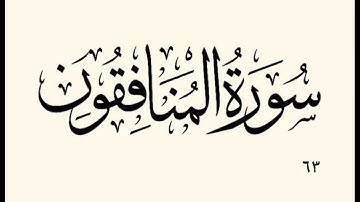 سُورَةُ المُنَافِقُونِ
٦٣